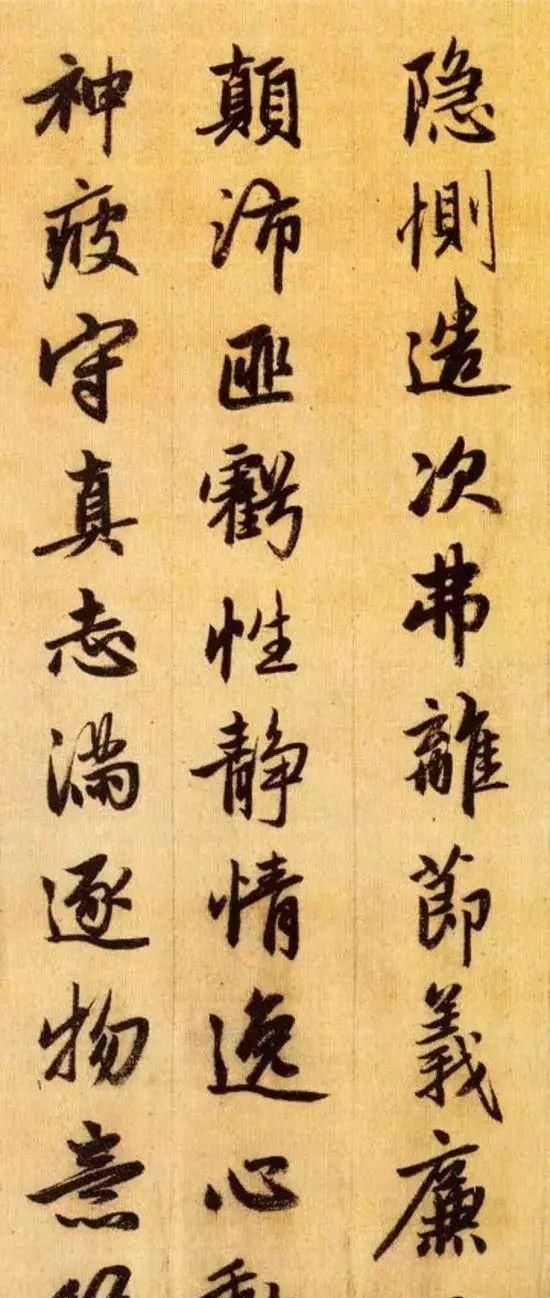 隐恻造次弗離節義廉
顛沛匪虧性静情逸心
神疲守真志滿逐物意